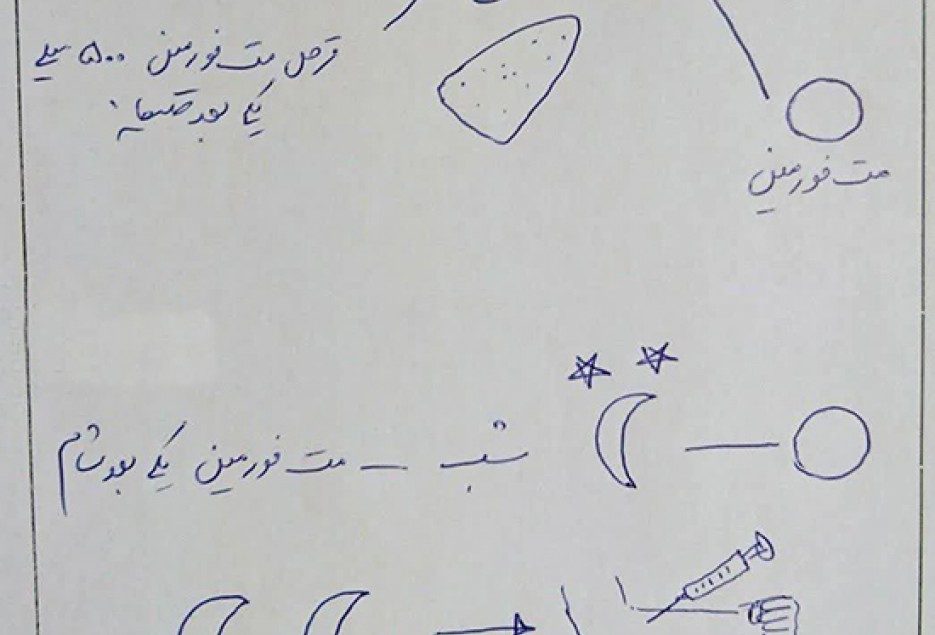 قرص مت فورمین ۵۰۰ میلی
یکی بعد صبحانه
مت فورمین
شب — مت فورمین یکی بعد شام